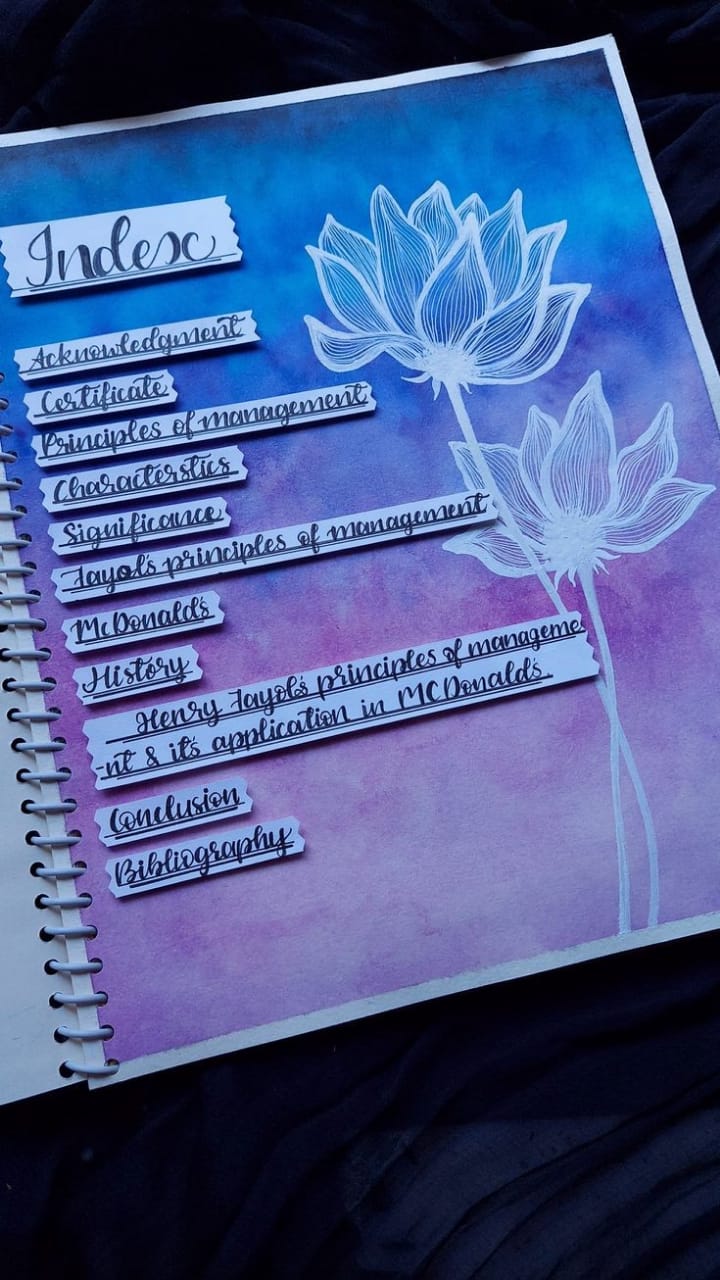 Index
Acknowledgment
Certificate
Principles of management
Characterstics
Significance
Fayol's principles of management
McDonald's
History
Henry Fayol's principles of manageme
-nt & it's application in MCDonald's.
Conclusion
Bibliography